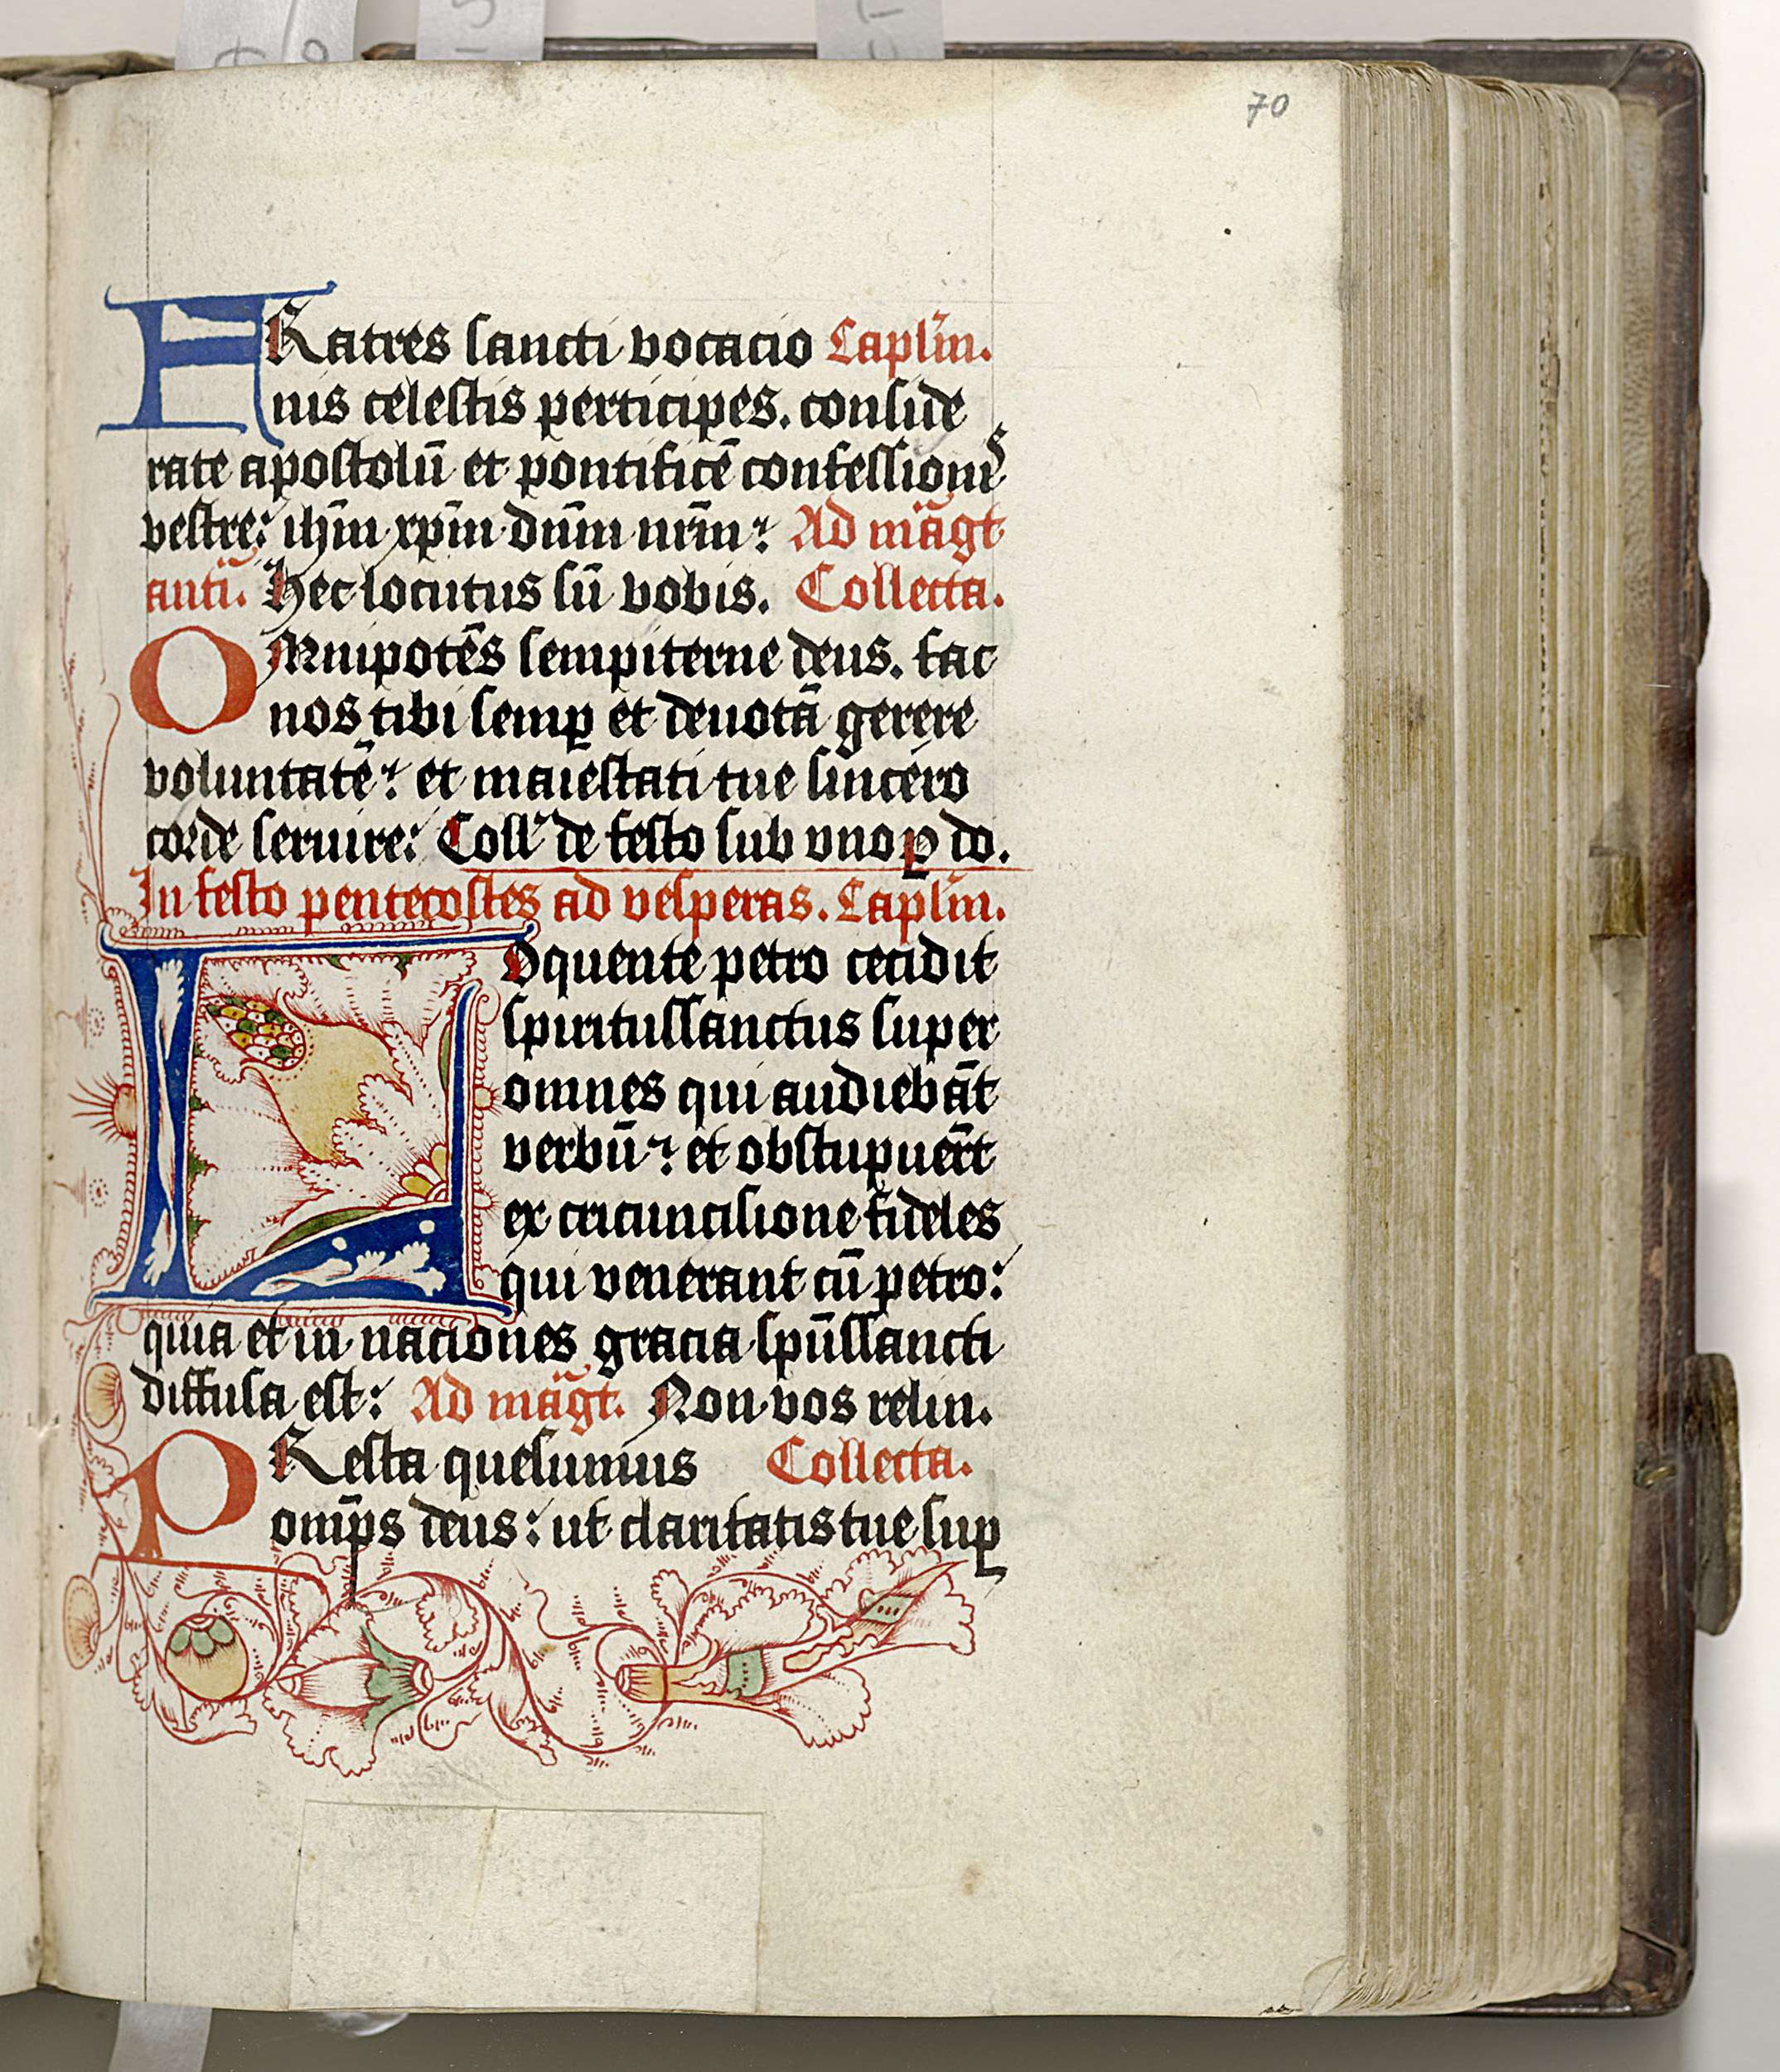 70
FRatres sancti vocacio Caplm̄.
nis celestis perticipes. conside
rate apostolū et pontificē confessionis
vestre: ihm̄ xpm̄ dnm̄ nrm̄: Ad māgt
anti. Hec locutus sū vobis. Collecta.
OMnipotēs sempiterne deus. fac
nos tibi semꝑ et deuotā gerere
voluntatē: et maiestati tue sincero
corde seruire: Coll' de festo sub vno ꝑ do.
In festo pentecostes ad vesperas. Caplm̄.
LOquente petro cecidit
spiritussanctus super
omnes qui audiebāt
verbū: et obstupuer̄t
ex circuncisione fideles
qui venerant cū petro:
quia et in naciones gracia spūssancti
diffusa est: Ad māgt. Non vos relin.
PResta quesumus Collecta.
omp̄s deus: ut claritatis tue suꝑ